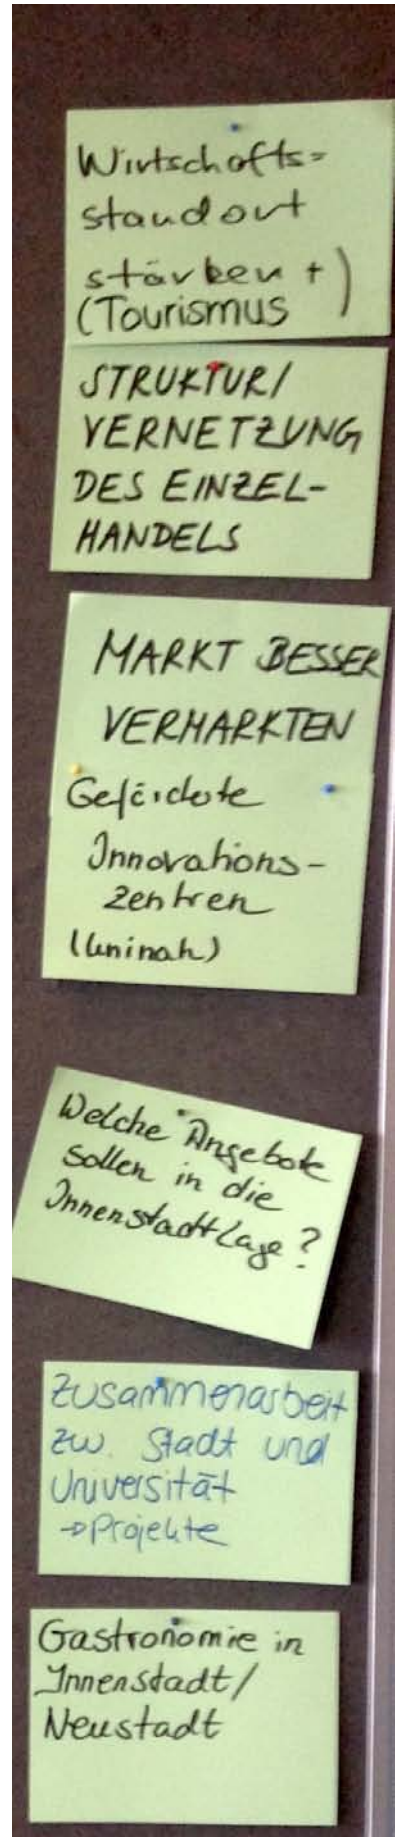 Wirtschafts=
standort
stärken +)
(Tourismus
STRUKTUR/
VERNETZUNG
DES EINZEL-
HANDELS
MARKT BESSER
VERMARKTEN
Geförderte
Innovations-
zentren
(uninah)
Welche Angebote
sollen in die
Innenstadtlage?
Zusammenarbeit
zw. Stadt und
Universität
→ Projekte
Gastronomie in
Innenstadt/
Neustadt